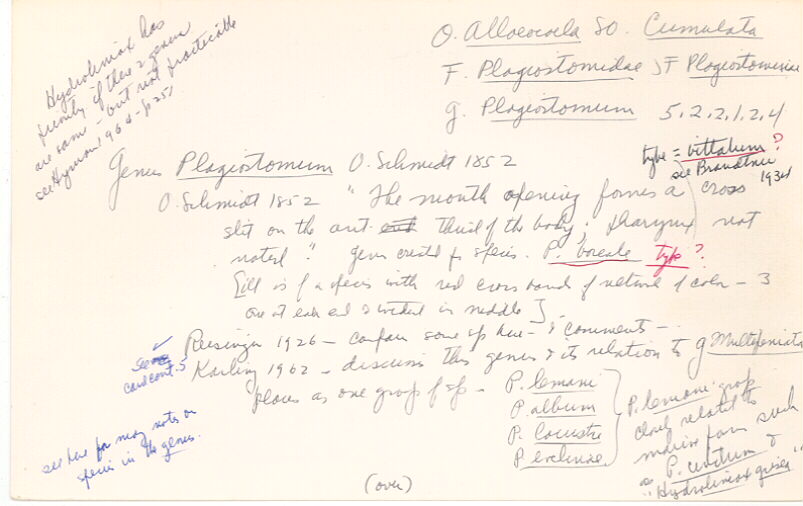 O. Alloeocoela SO. Cumulata
F. Plagiostomidae SF Plagiostominae
g. Plagiostomum 5, 2, 2, 1, 2, 4
Hydrolimax has
priority if these 2 genera
are same - but not practicable
see Hyman 1964 - p 251
type = vittatum ?
see Brandtner
1934
Genus Plagiostomum O. Schmidt 1852
O. Schmidt 1852 " The mouth opening forms a cross
slit on the ant end third of the body; pharynx not
noted " genus created for species. P. boreale type ?
[ill is of a species with red cross band of network of color - 3
one at each end & widest in middle].
Reisinger 1926 - compare some sp here - & comments -
see
card cont. 5
Karling 1962 - discusses this genus & its relation to g Multipeniata
places as one group of sp - P. lemani
P. album
P. lacustre
P. evelinae
P. lemani group
closely related to
marine forms such
as P. cinctum &
"Hydrolimax grisea"
see here for many notes on
species in the genus.
(over)